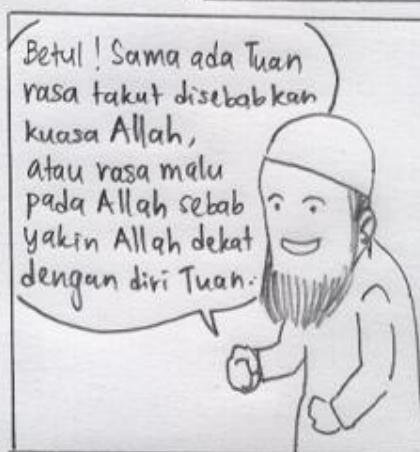 Betul! Sama ada Tuan
rasa takut disebabkan
kuasa Allah,
atau rasa malu
pada Allah sebab
yakin Allah dekat
dengan diri Tuan.